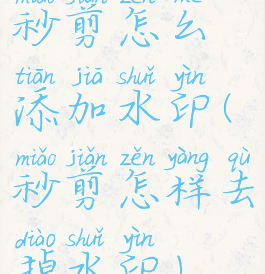 miǎo jiǎn zěn me
秒剪怎么
tiān jiā shuǐ yìn
添加水印(
miǎo jiǎn zěn yàng qù
秒剪怎样去
diào shuǐ yìn
掉水印)